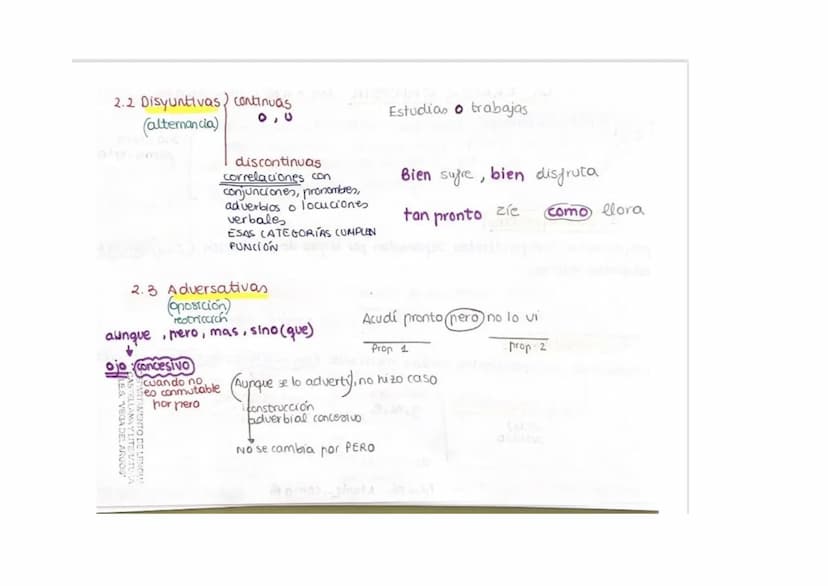 2.2 Disyuntivas continuas
(alternancia) o, u
Estudias o trabajas
discontinuas
correlaciones con
conjunciones, pronombres,
adverbios o locuciones
verbales
ESAS CATEGORÍAS CUMPLEN
FUNCIÓN
Bien sufre, bien disfruta
tan pronto ríe como llora
2.3 Adversativas
(oposición)
restricción
aunque, pero, mas, sino (que)
Acudí pronto pero no lo vi
Prop 1
prop. 2
ojo: concesivo
cuando no
es conmutable
por pero
(Aunque se lo advertí), no hizo caso
construcción
adverbial concesiva
NO se cambia por PERO